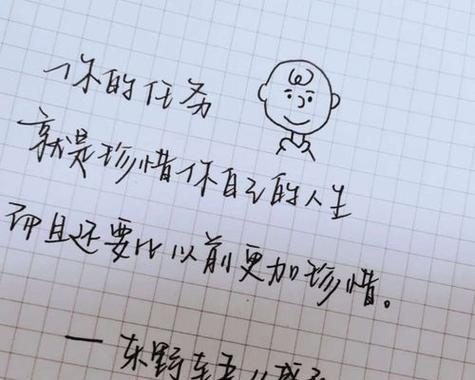 你的任务
就是珍惜你自己的人生
而且还要比以前更加珍惜。
一东野圭吾